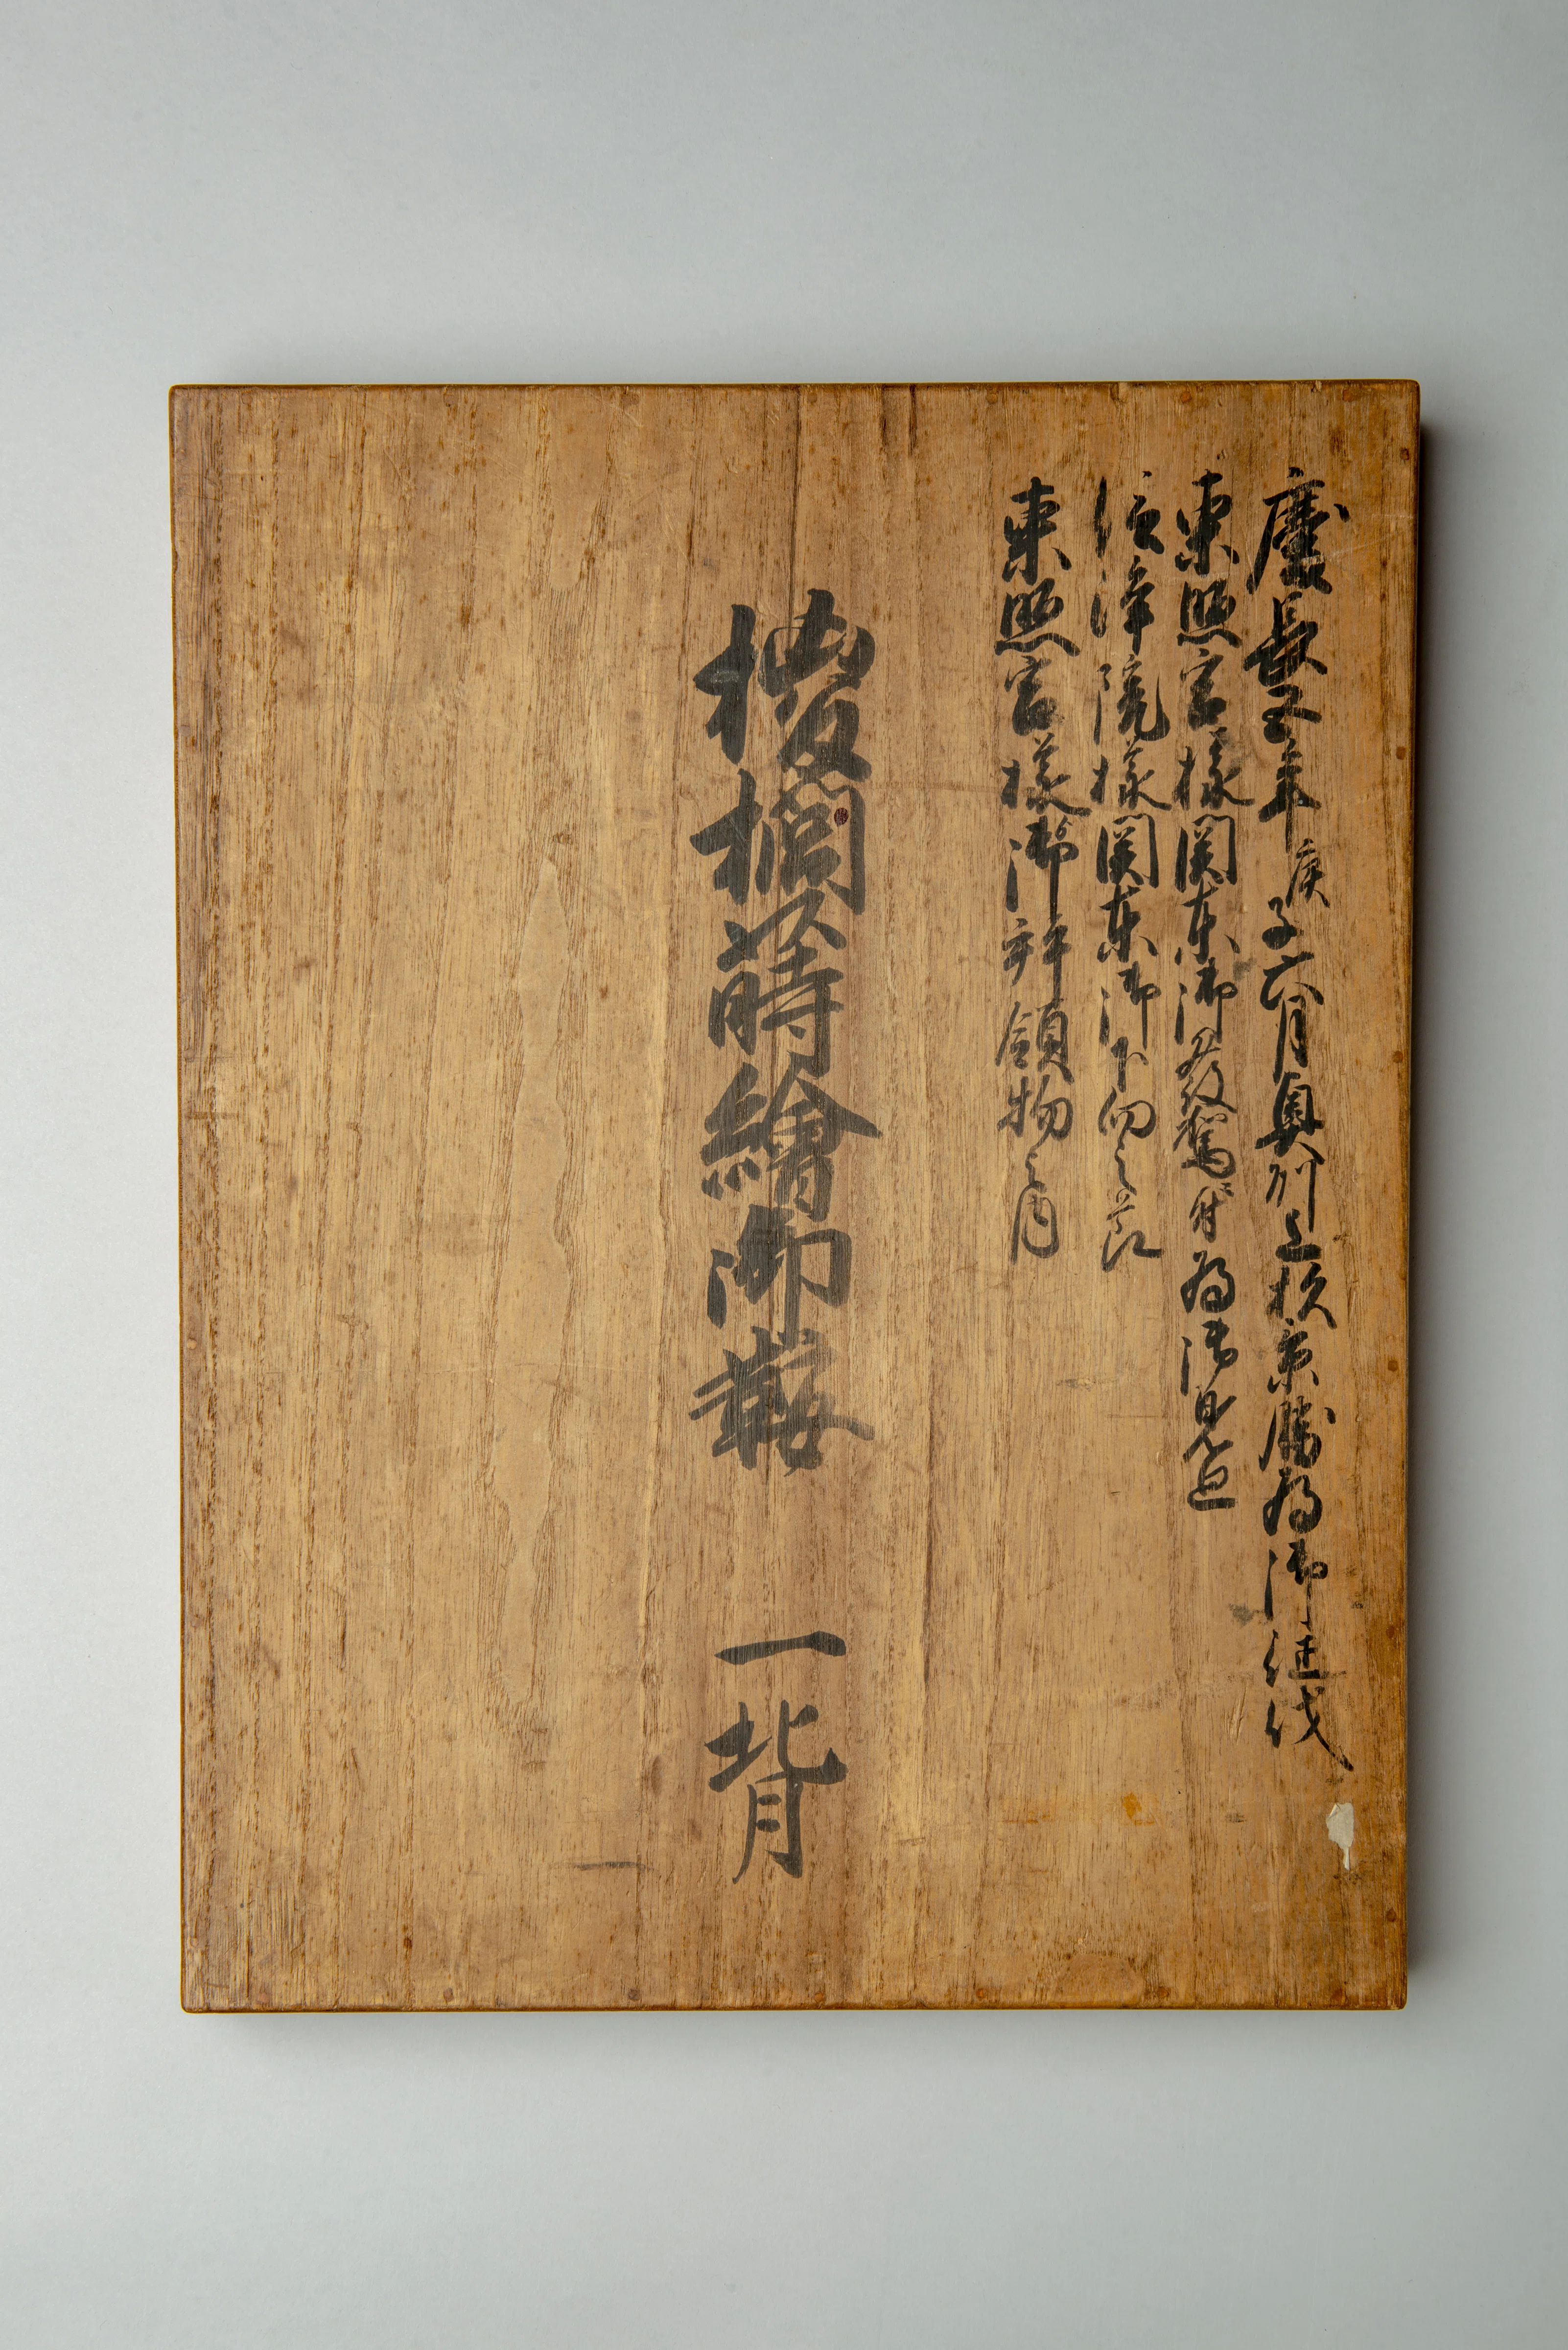 慶長五年庚子六月奥州上杦景勝為御征伐
東照宮様関東御發駕ニ付為御見廻
清浄院様関東御下向之節
東照宮様御拝領物之内
椶櫚蒔繪御鞍 一背